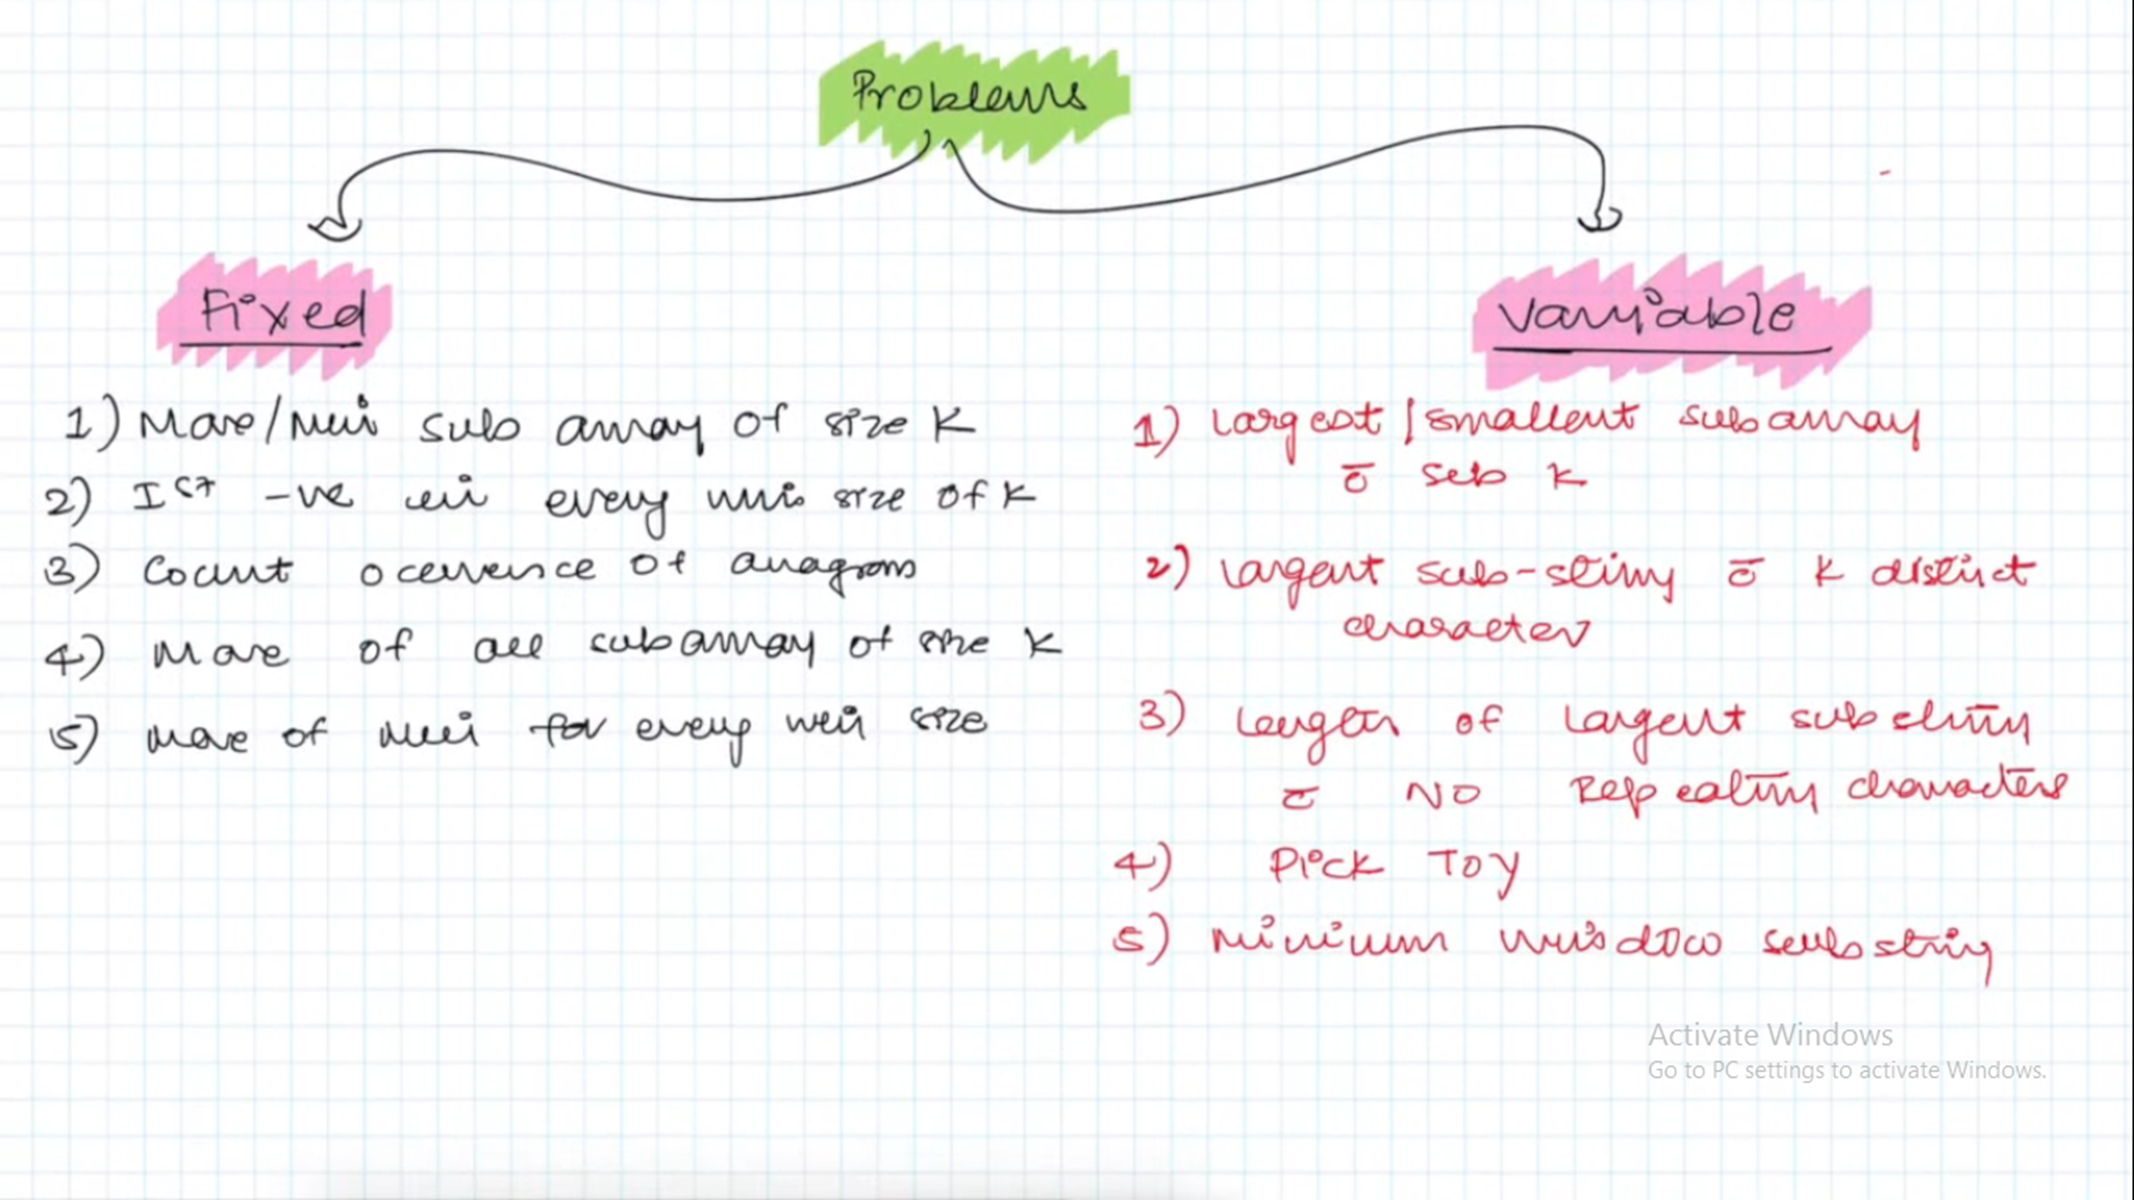 Problems
Fixed
1) Max/Min sub array of size K
2) Ist -ve in every win size of K
3) Count occurrence of anagram
4) Max of all subarray of size K
5) Max of Min for every win size
Variable
1) Largest / smallest subarray
c̄ sum K
2) Largest sub-string c̄ K distinct
character
3) Length of largest substring
c̄ NO Repeating characters
4) Pick Toy
5) Minimum window substring
Activate Windows
Go to PC settings to activate Windows.